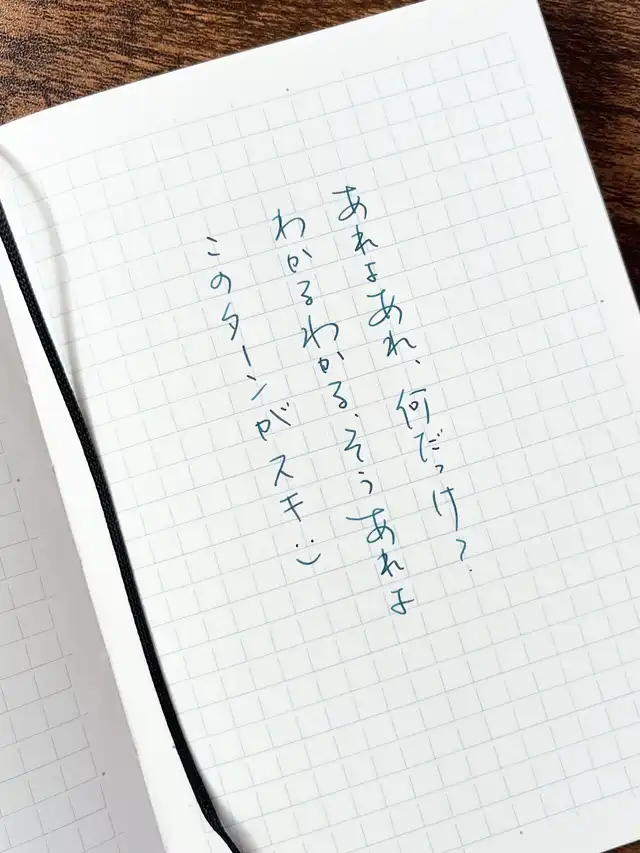 あれよあれ、何だっけ？
わかるわかる、そうあれよ
このターンがスキ :)